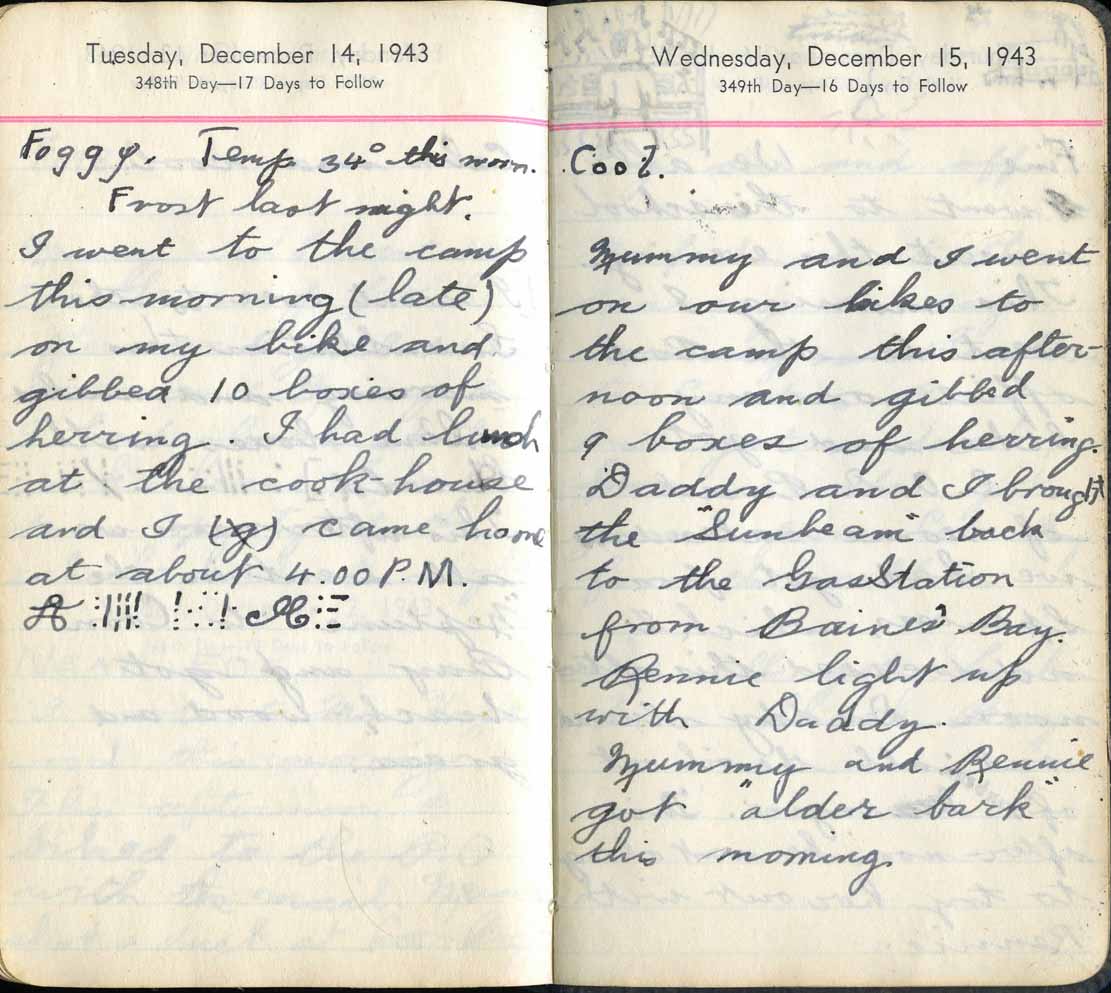 Tuesday, December 14, 1943
348th Day—17 Days to Follow
Foggy. Temp 34° this morn.
Frost last night.
I went to the camp
this morning (late)
on my bike and
gibbed 10 boxes of
herring. I had lunch
at the cook-house
and I (g) came home
at about 4.00 P.M.
Wednesday, December 15, 1943
349th Day—16 Days to Follow
Cool.
Mummy and I went
on our bikes to
the camp this after-
noon and gibbed
9 boxes of herring.
Daddy and I brought
the "Sunbeam" back
to the Gas Station
from Baines' Bay.
Rennie light up
with Daddy.
Mummy and Rennie
got "alder bark"
this morning.